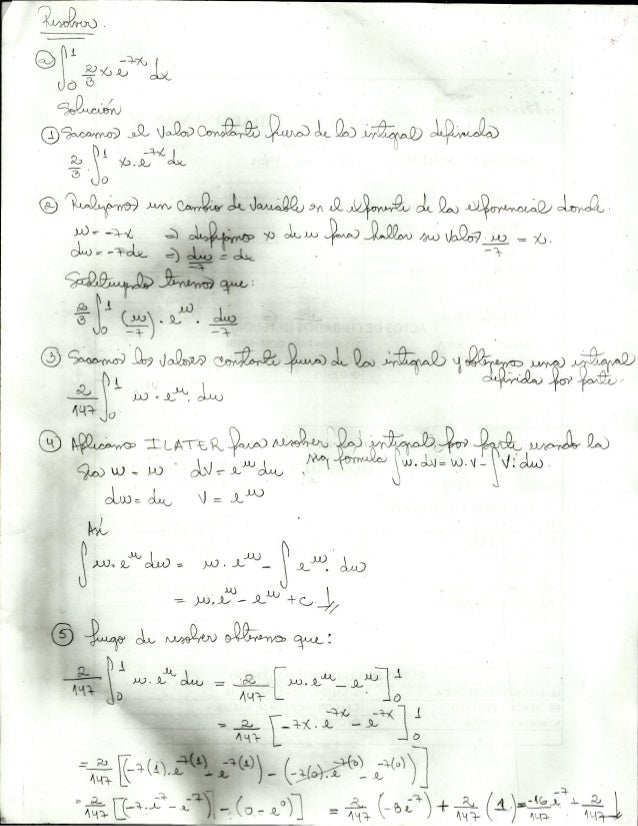 Resolver.
ⓐ ∫₀¹ 2/3 x e^{-7x} dx
Solución
① Sacamos el valor constante fuera de la integral definida
2/3 · ∫₀¹ x · e^{-7x} dx
② Realizamos un cambio de variable en el exponente de la exponencial donde.
u = -7x ⇒ despejamos x de u para hallar su valor u/-7 = x.
du = -7dx ⇒ du/-7 = dx
Sustituyendo tenemos que:
2/3 ∫₀¹ (u/-7) · e^u · du/-7
③ Sacamos los valores constante fuera de la integral y obtenemos una integral
definida por parte.
2/147 ∫₀¹ u · e^u · du
④ Aplicamos ILATER para resolver la integral por parte usando la
Sea u = u dV = e^u du sig fórmula ∫u · dv = u · v - ∫v · du.
du = du V = e^u
Así
∫ u · e^u du = u · e^u - ∫ e^u · du
= u · e^u - e^u + c
⑤ Luego de resolver obtenemos que:
2/147 ∫₀¹ u · e^u du = 2/147 [u · e^u - e^u]₀¹
= 2/147 [-7x · e^{-7x} - e^{-7x}]₀¹
= 2/147 [(-7(1) · e^{-7(1)} - e^{-7(1)}) - (-7(0) · e^{-7(0)} - e^{-7(0)})]
= 2/147 [(-7 · e^{-7} - e^{-7}) - (0 - e^0)] = 2/147 (-8e^{-7}) + 2/147 (1) = -16/147 e^{-7} + 2/147